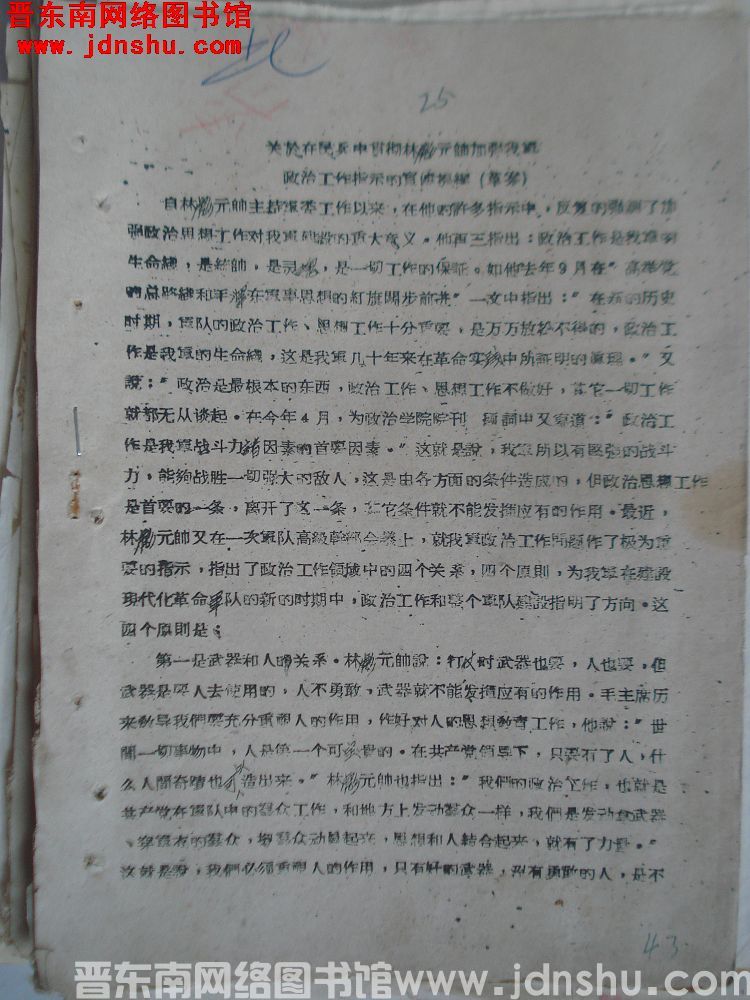 晋东南网络图书馆
www.jdnshu.com
25
关於在民兵中贯彻林彪元帅加强我軍
政治工作指示的宣傳提纲（草案）
自林彪元帥主持軍委工作以来，在他的許多指示中，反复的强調了加
强政治思想工作对我軍建設的重大意义。他再三指出：政治工作是我軍的
生命綫，是統帥，是灵魂，是一切工作的保証。如他去年9月在“高举党
的总路綫和毛澤东軍事思想的紅旗闊步前进”一文中指出：“在新的历史
时期，軍队的政治工作、思想工作十分重要，是万万放松不得的，政治工
作是我軍的生命綫，这是我軍几十年来在革命实践中所証明的眞理。”又
說：“政治是最根本的东西，政治工作、思想工作不做好，其它一切工作
就都无从谈起。在今年4月，为政治学院院刊 題詞中又寫道：“政治工
作是我軍战斗力諸因素的首要因素。”这就是說，我軍所以有坚强的战斗
力，能夠战胜一切强大的敌人，这是由各方面的条件造成的，但政治思想工作
是首要的一条，离开了这一条，其它条件就不能发揮应有的作用。最近，
林彪元帥又在一次軍队高級幹部会議上，就我軍政治工作問題作了极为重
要的指示，指出了政治工作領域中的四个关系，四个原則，为我軍在建設
現代化革命軍队的新的时期中，政治工作和整个軍队建設指明了方向。这
四个原則是：
第一是武器和人的关系。林彪元帥說：打仗时武器也要，人也要，但
武器是要人去使用的，人不勇敢，武器就不能发揮应有的作用。毛主席历
来教导我們要充分重視人的作用，作好对人的思想教育工作，他說：“世
間一切事物中，人是第一个可寶貴的。在共产党領导下，只要有了人，什
么人間奇蹟也可造出来。”林彪元帥也指出：“我們的政治工作，也就是
共产党在軍队中的羣众工作，和地方上发动羣众一样，我們是发动拿武器
、穿軍衣的羣众，把羣众动員起来，思想和人結合起来，就有了力量。”
这就是說，我們必須重視人的作用，只有好的武器，沒有勇敢的人，是不
43
晋东南网络图书馆www.jdnshu.com